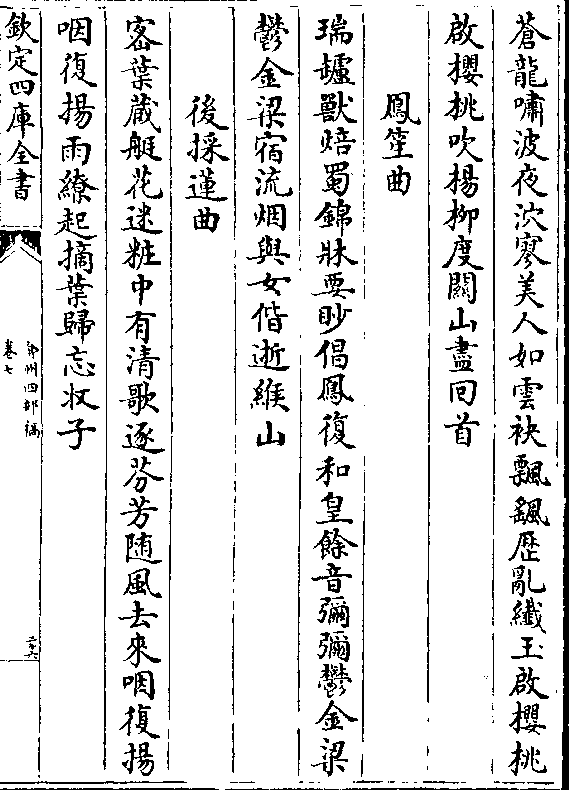 蒼龍嘯波夜泬寥美人如雲袂飄颻歷亂纖玉啟攖桃
啟攖桃吹揚柳度關山盡回首
鳳笙曲
瑞罏獸焙蜀錦牀要眇倡鳳復和皇餘音彌彌鬱金梁
鬱金梁宿流烟與女偕逝緱山
後採蓮曲
宻葉蔵艇花迷粧中有清歌逐芬芳随風去來咽復揚
咽復揚雨繚起摘葉歸忘収子
欽定四庫全書
弇州四部稿
卷七
二十六